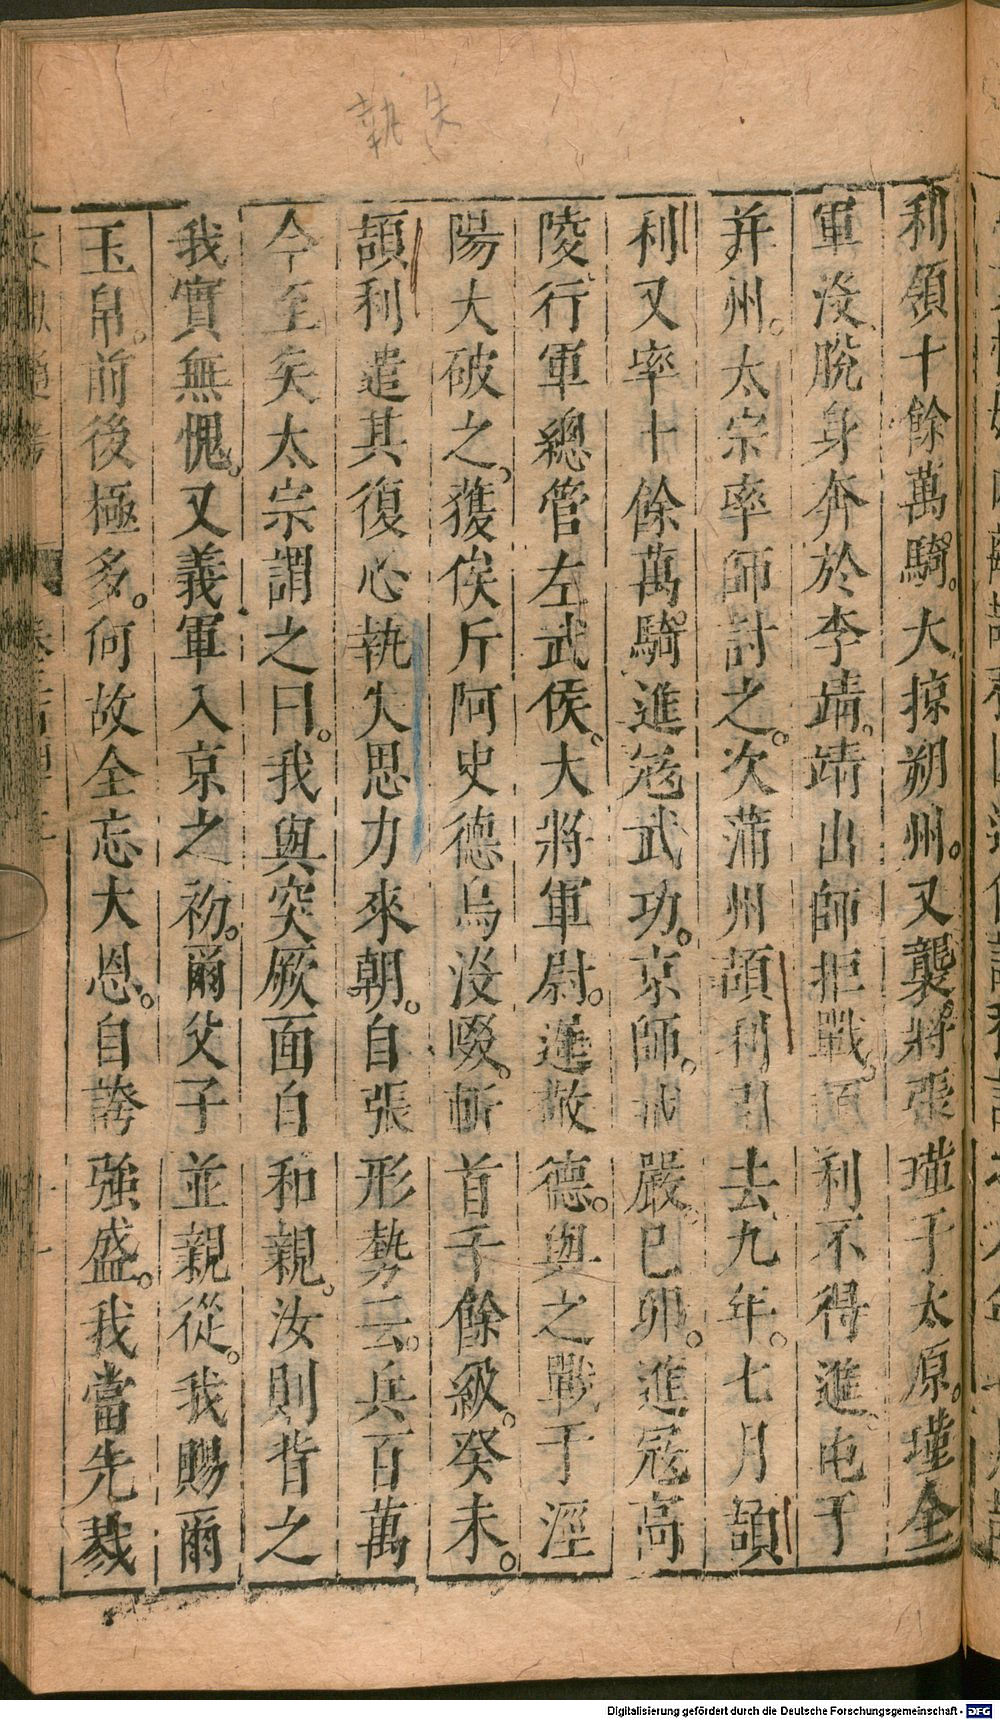 執失
利領十餘萬騎。大掠朔州。又襲。將張瑾于太原。瑾全
軍沒、脫身奔於李靖。靖出師拒戰。頡利不得進。屯于
并州。太宗率師討之。次蒲州頡利引去。九年。七月頡
利又率十餘萬騎進冦武功。京師。戒嚴。己卯。進冦高
陵行軍總管左武侯。大將軍尉。遲敬德。與之戰于涇
陽大破之。獲俟斤阿史德烏沒啜。斬首千餘級。癸未。
頡利遣其復心執失思力來朝。自張形勢云。兵百萬
今至矣太宗謂之曰。我與突厥面自和親。汝則背之
我實無愧。又義軍入京之初。爾父子並親從。我賜爾
玉帛。前後極多。何故全忘大恩。自誇強盛。我當先戮
Digitalisierung gefördert durch die Deutsche Forschungsgemeinschaft - DFG